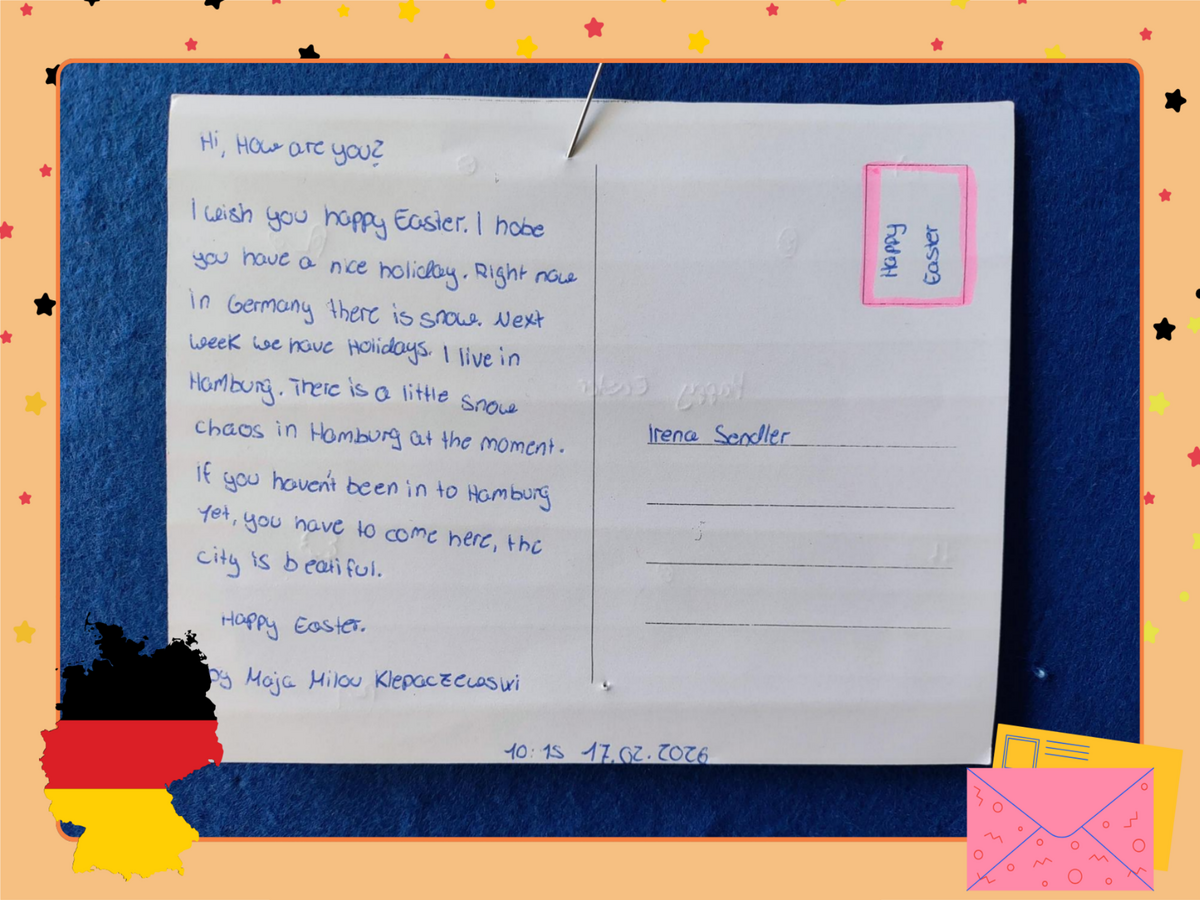 Hi, How are you?
I wish you happy Easter. I hobe
you have a nice holiday. Right now
in Germany there is snow. Next
week we have Holidays. I live in
Hamburg. There is a little snow
chaos in Hamburg at the moment.
if you haven't been in to Hamburg
yet, you have to come here, the
city is beatiful.
Happy Easter.
by Maja Milou Klepaczewski
10:15 17.02.2026
Happy
Easter
Irena Sendler